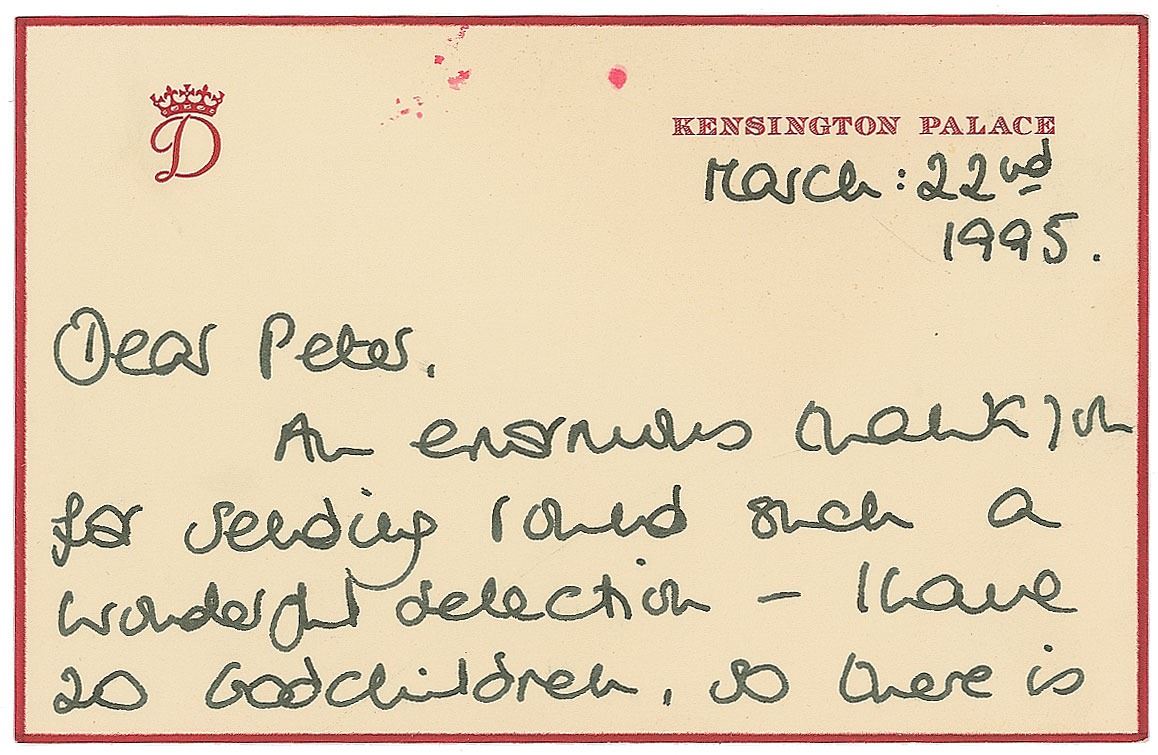 D
KENSINGTON PALACE
March: 22nd
1995.
Dear Peter,
An enormous thank you
for sending round such a
wonderful selection - I have
20 Godchildren, so there is